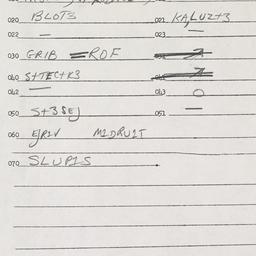 020 BLOT3 021 KALUZ+3
022 — 023 —
030 GRIB =ROF
040 S+TEC+K3
042 — 043 O
050 S+3SEJ 051 —
060 EJRIV MIDRUIT
070 SLUPIS